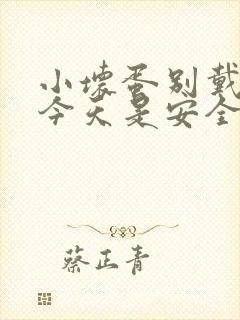 小坏蛋别戴
今天是安全
蔡正青